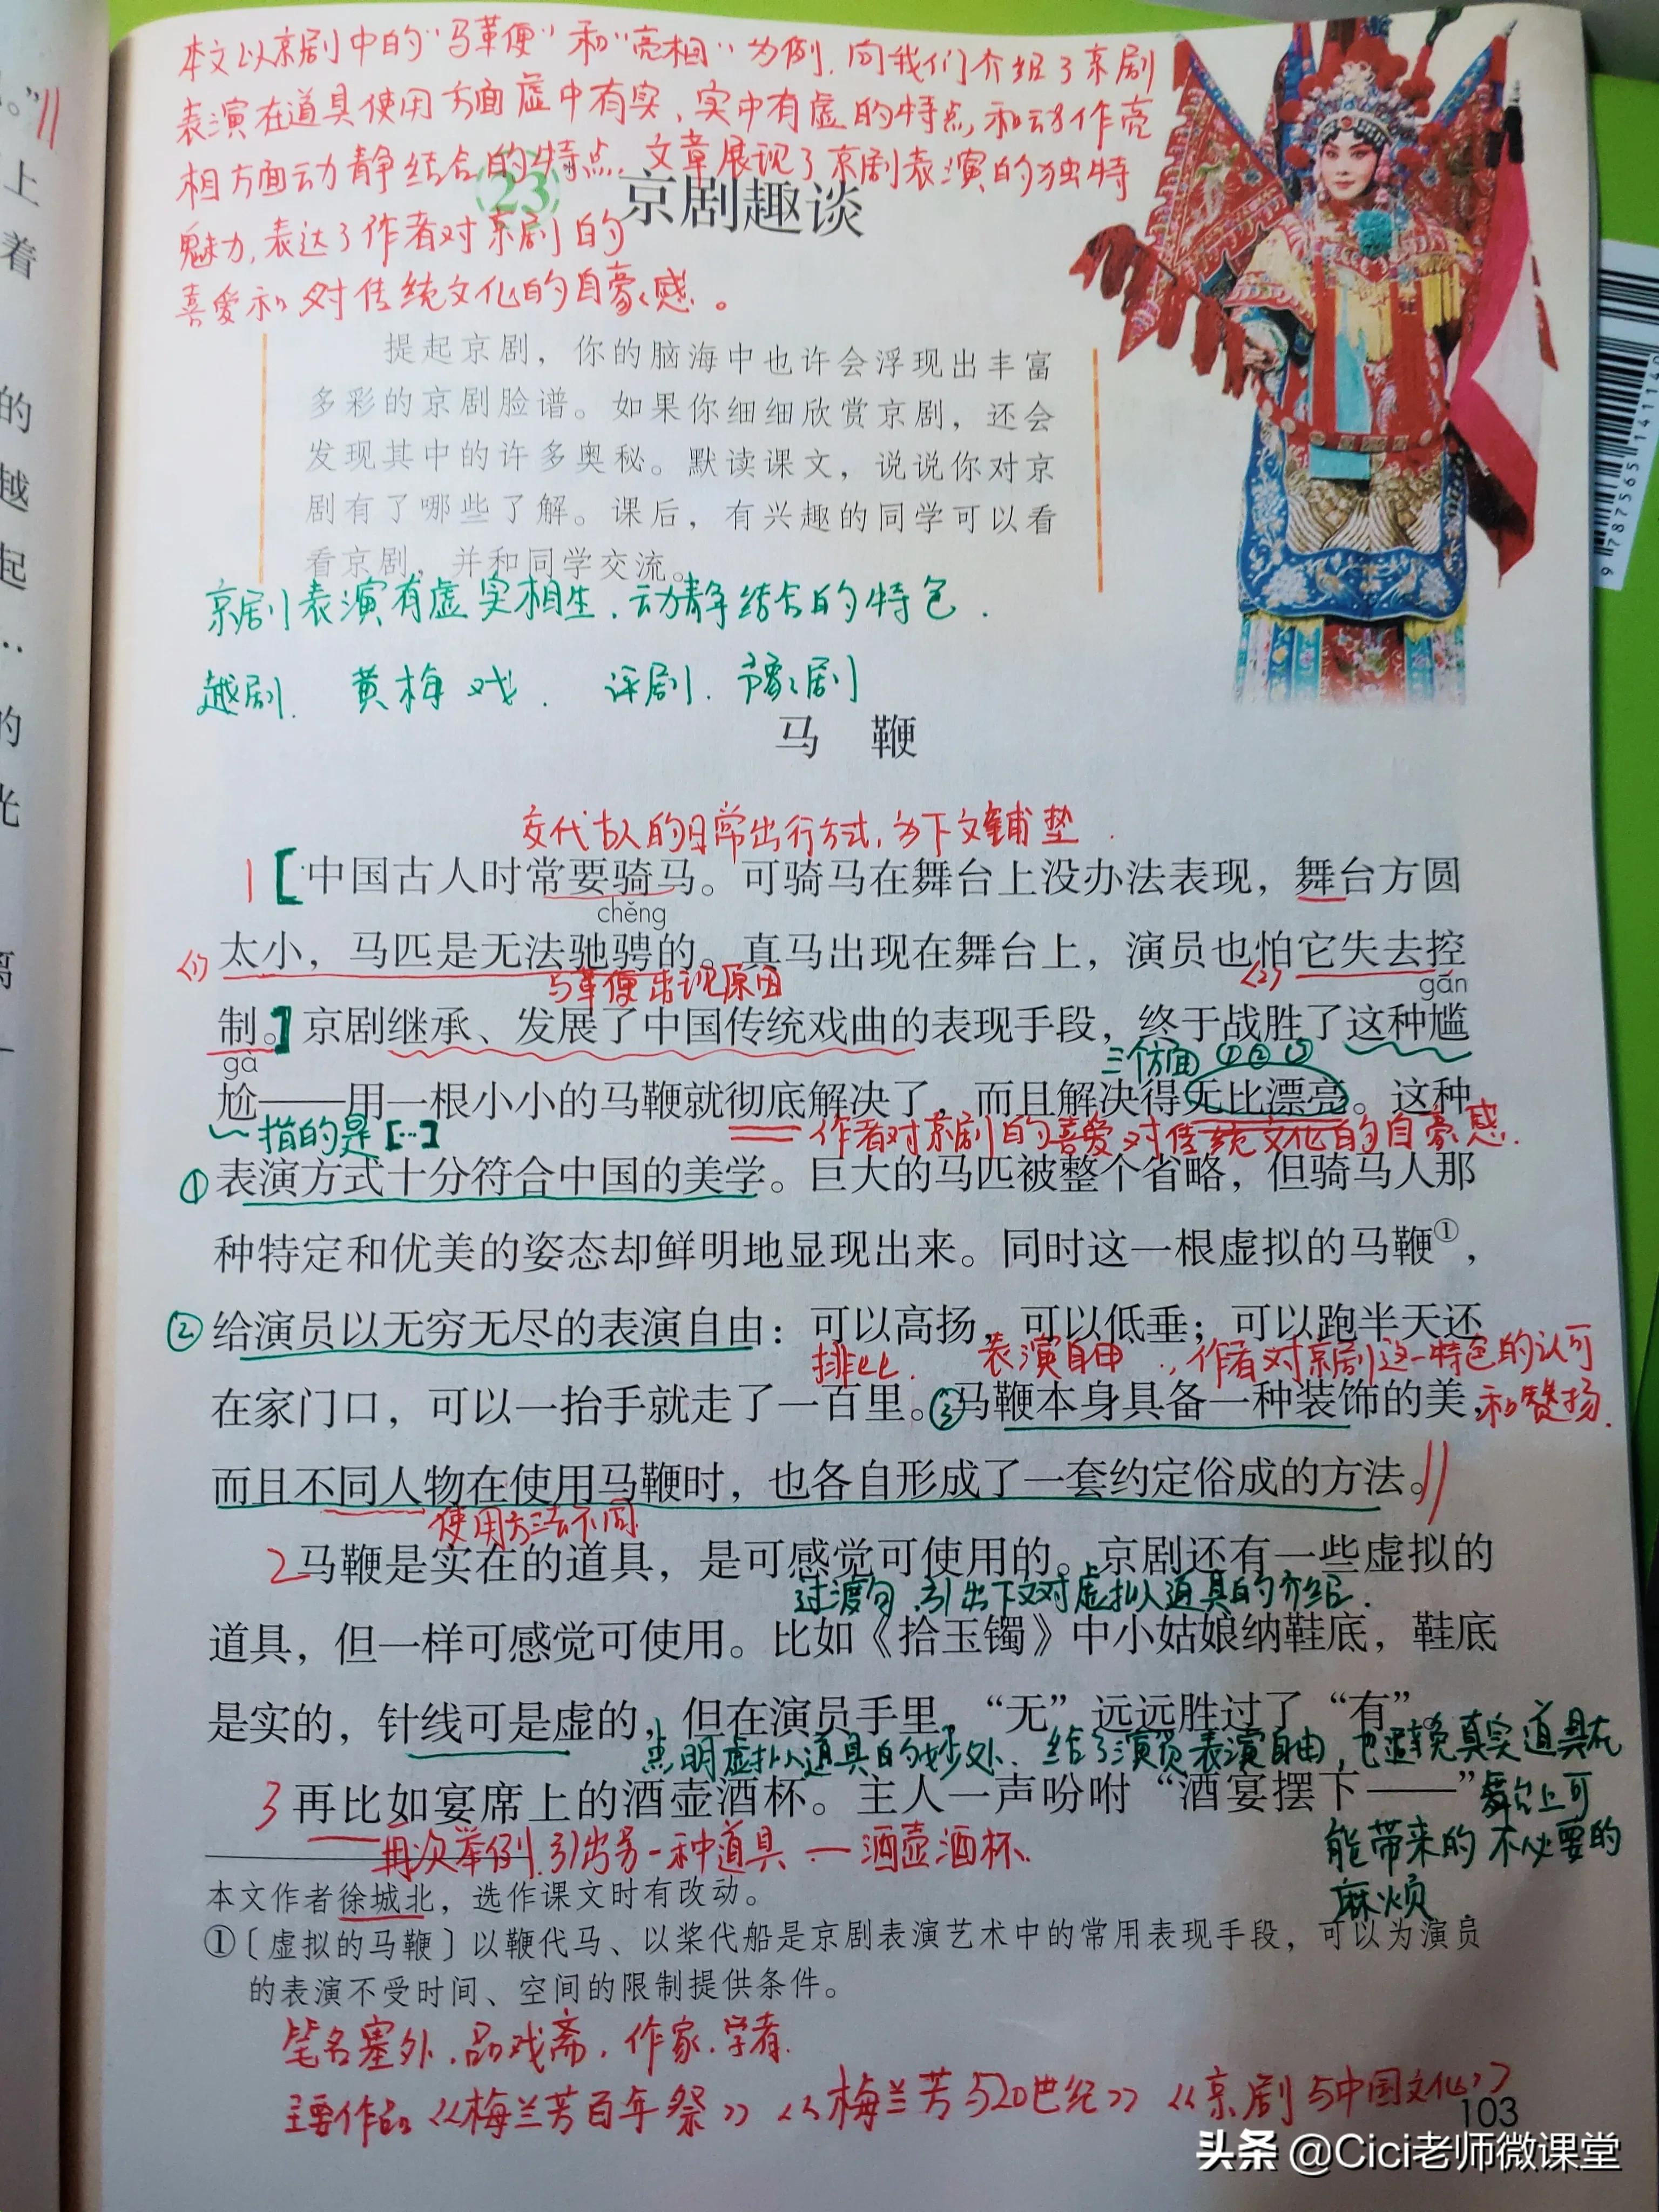 。”
上
着
的
越
起
…
的
光
离
本文以京剧中的“马革便”和“亮相”为例,向我们介绍了京剧
表演在道具使用方面虚中有实、实中有虚的特点,和动作亮
相方面动静结合的特点,文章展现了京剧表演的独特
魅力,表达了作者对京剧的
喜爱和对传统文化的自豪感。
23 京剧趣谈
提起京剧，你的脑海中也许会浮现出丰富
多彩的京剧脸谱。如果你细细欣赏京剧，还会
发现其中的许多奥秘。默读课文，说说你对京
剧有了哪些了解。课后，有兴趣的同学可以看
看京剧，并和同学交流。
京剧表演有虚实相生、动静结合的特色.
越剧. 黄梅戏. 评剧. 豫剧
马 鞭
交代古人的日常出行方式,为下文铺垫.
1[中国古人时常要骑马。可骑马在舞台上没办法表现，舞台方圆
chěng
<1>太小，马匹是无法驰骋的。真马出现在舞台上，演员也怕它失去控
马革便出现原因 <2> gān
制。]京剧继承、发展了中国传统戏曲的表现手段，终于战胜了这种尴
gà 三个方面①②③
尬——用一根小小的马鞭就彻底解决了，而且解决得无比漂亮。这种
指的是[…] 作者对京剧的喜爱对传统文化的自豪感.
①表演方式十分符合中国的美学。巨大的马匹被整个省略，但骑马人那
种特定和优美的姿态却鲜明地显现出来。同时这一根虚拟的马鞭①，
②给演员以无穷无尽的表演自由：可以高扬，可以低垂；可以跑半天还
排比. 表演自由.,作者对京剧这一特色的认可
在家门口，可以一抬手就走了一百里。③马鞭本身具备一种装饰的美，和赞扬.
而且不同人物在使用马鞭时，也各自形成了一套约定俗成的方法。
使用方法不同
2马鞭是实在的道具，是可感觉可使用的。京剧还有一些虚拟的
过渡句,引出下文对虚拟道具的介绍.
道具，但一样可感觉可使用。比如《拾玉镯》中小姑娘纳鞋底，鞋底
是实的，针线可是虚的，但在演员手里，“无”远远胜过了“有”。
点明虚拟道具的妙处.给了演员表演自由,也避免真实道具在
3再比如宴席上的酒壶酒杯。主人一声吩咐“酒宴摆下——”舞台上可
再次举例,引出另一种道具—酒壶酒杯. 能带来的不必要的
麻烦
本文作者徐城北，选作课文时有改动。
①〔虚拟的马鞭〕以鞭代马、以桨代船是京剧表演艺术中的常用表现手段，可以为演员
的表演不受时间、空间的限制提供条件。
笔名塞外.品戏斋.作家.学者.
主要作品《梅兰芳百年祭》《梅兰芳与20世纪》《京剧与中国文化》
103
头条 @Cici老师微课堂
9 787565 14114